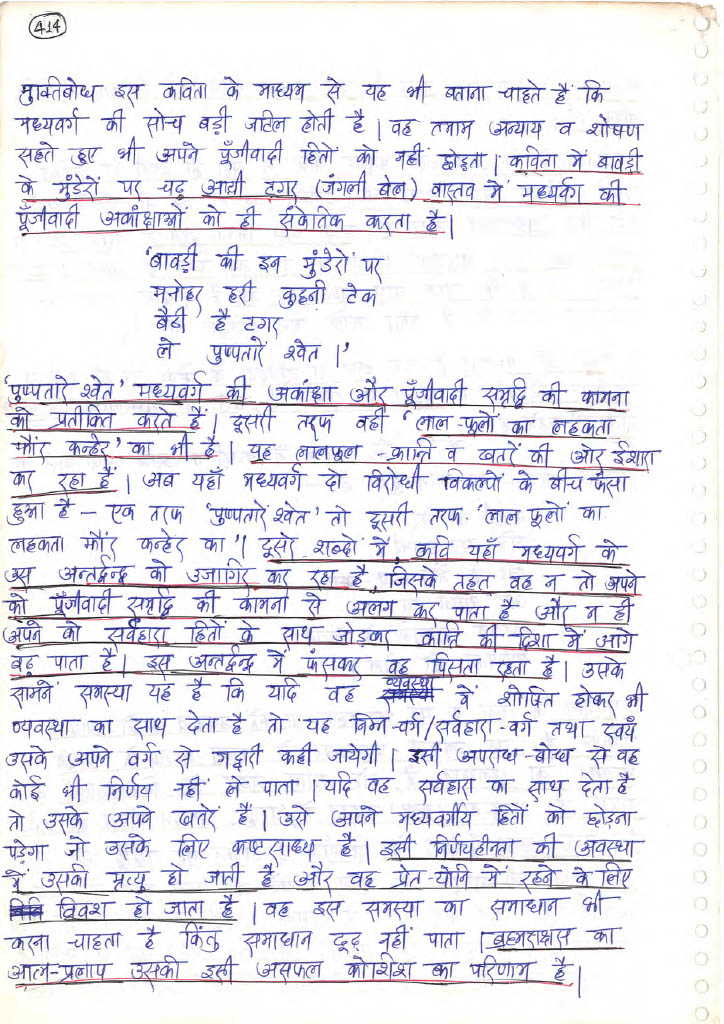 414
मुक्तिबोध इस कविता के माध्यम से यह भी बताना चाहते हैं कि
मध्यवर्ग की सोच बड़ी जटिल होती है | वह तमाम अन्याय व शोषण
सहते हुए भी अपने पूँजीवादी हितों को नहीं छोड़ता | कविता में बावड़ी
के मुंडेरों पर चढ़ आयी टगर (जंगली बेल) वास्तव में मध्यवर्ग की
पूँजीवादी अकांक्षाओं को ही संकेतिक करता है |
'बावड़ी की इन मुंडेरों पर
मनोहर हरी कुहनी टेक
बैठी है टगर
ले पुष्पतारे श्वेत |'
'पुष्पतारे श्वेत' मध्यवर्ग की अकांक्षा और पूँजीवादी समृद्धि की कामना
को प्रतीकित करते हैं | दूसरी तरफ वहीं 'लाल-फूलों का लहकता
झौंर कन्हेर' का भी है | यह लालफूल - क्रान्ति व खतरे की ओर ईशारा
कर रहा है | अब यहाँ मध्यवर्ग दो विरोधी विकल्पों के बीच फंसा
हुआ है - एक तरफ 'पुष्पतारे श्वेत' तो दूसरी तरफ 'लाल फूलों का
लहकता झौंर कन्हेर का' | दूसरे शब्दों में कवि यहाँ मध्यवर्ग के
उस अन्तर्द्वन्द्व को उजागिर कर रहा है जिसके तहत वह न तो अपने
को पूँजीवादी समृद्धि की कामना से अलग कर पाता है और न ही
अपने को सर्वहारा हितों के साथ जोड़कर क्रांति की दिशा में आगे
बढ़ पाता है | इस अन्तर्द्वन्द्व में फंसकर वह पिसता रहता है | उसके
सामने समस्या यह है कि यदि वह व्यवस्था में शोषित होकर भी
व्यवस्था का साथ देता है तो यह निम्न-वर्ग/सर्वहारा-वर्ग तथा स्वयँ
उसके अपने वर्ग से गद्दारी कही जायेगी | इसी अपराध-बोध से वह
कोई भी निर्णय नहीं ले पाता | यदि वह सर्वहारा का साथ देता है
तो उसके अपने खतरे हैं | उसे अपने मध्यवर्गीय हितों को छोड़ना
पड़ेगा जो उसके लिए कष्टसाध्य है | इसी निर्णयहीनता की अवस्था
में उसकी मृत्यु हो जाती है और वह प्रेत-योनि में रहने के लिए
विवश हो जाता है | वह इस समस्या का समाधान भी
करना चाहता है किंतु समाधान ढूढ़ नहीं पाता | ब्रह्मराक्षस का
आत्म-प्रलाप उसकी इसी असफल कोशिश का परिणाम है |